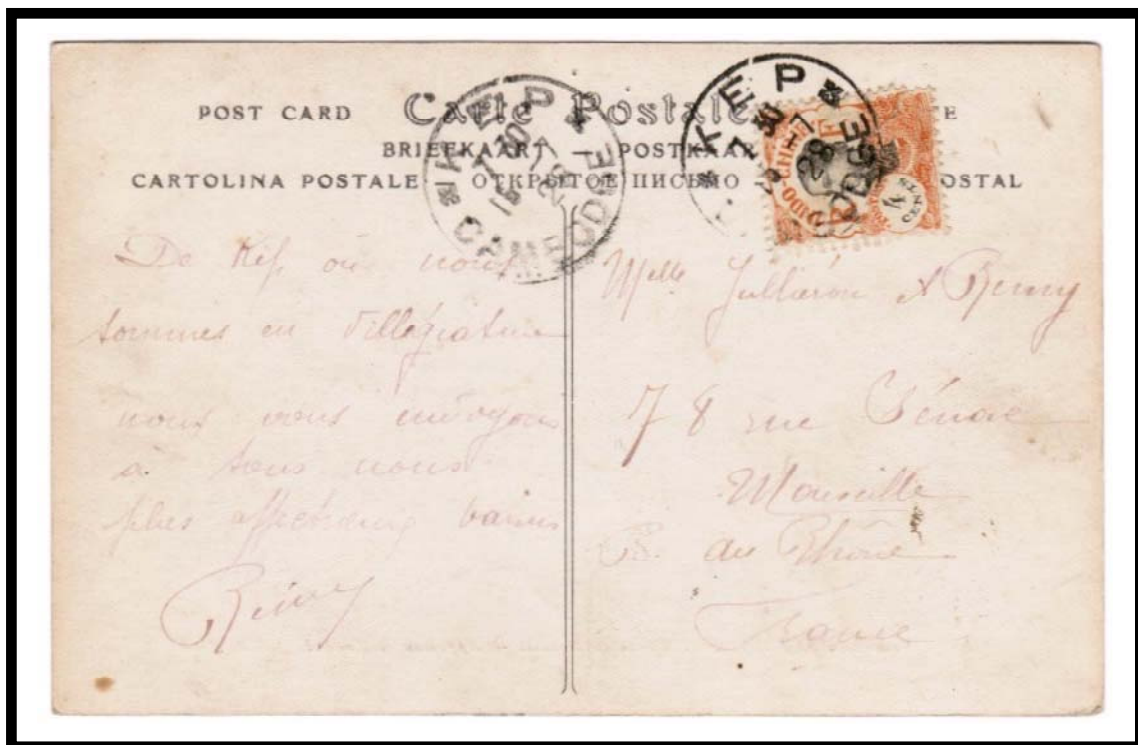 POST CARD Carte Postale
BRIEFKAART POSTKAAR
CARTOLINA POSTALE ОТКРЫТОЕ ПИСЬМО OSTAL
KEP
7 30
17
28
CAMBODGE
KEP
7 30
17
28
ODGE
INDO-CHINE
4
CENTS
De Kép où nous
sommes en villégiature
nous vous envoyons
à tous nous
plus affectueux baisers
Rémy
Melle Jullieron & Remy
78 rue Sénac
Marseille
B. du Rhône
France